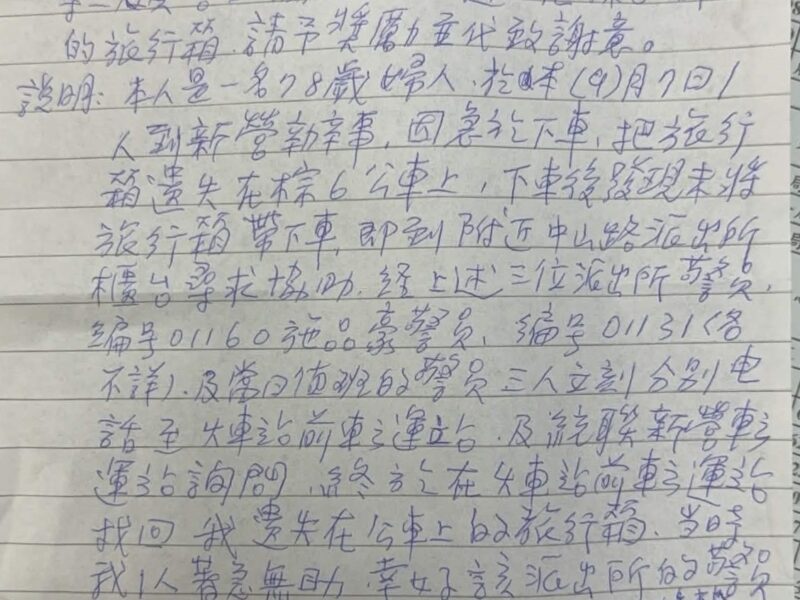 的旅行箱,請予獎勵並代致謝意。
說明:本人是一名78歲婦人,於本(9)月7日1
人到新營勤辛事,因急於下車,把旅行
箱遺失在棕6公車上,下車後發現未將
旅行箱帶下車,即到附近中山路派出所
櫃台尋求協助,經上述三位派出所警員,
編号01160施品豪警員,編号01131(名
不詳)、及當日值班的警員三人立刻分別電
話至火車站前車運站、及統聯新營車
運站詢問,終於在火車站前車運站
找回我遺失在公車上的旅行箱、當時
我1人著急無助,幸好該派出所的警員